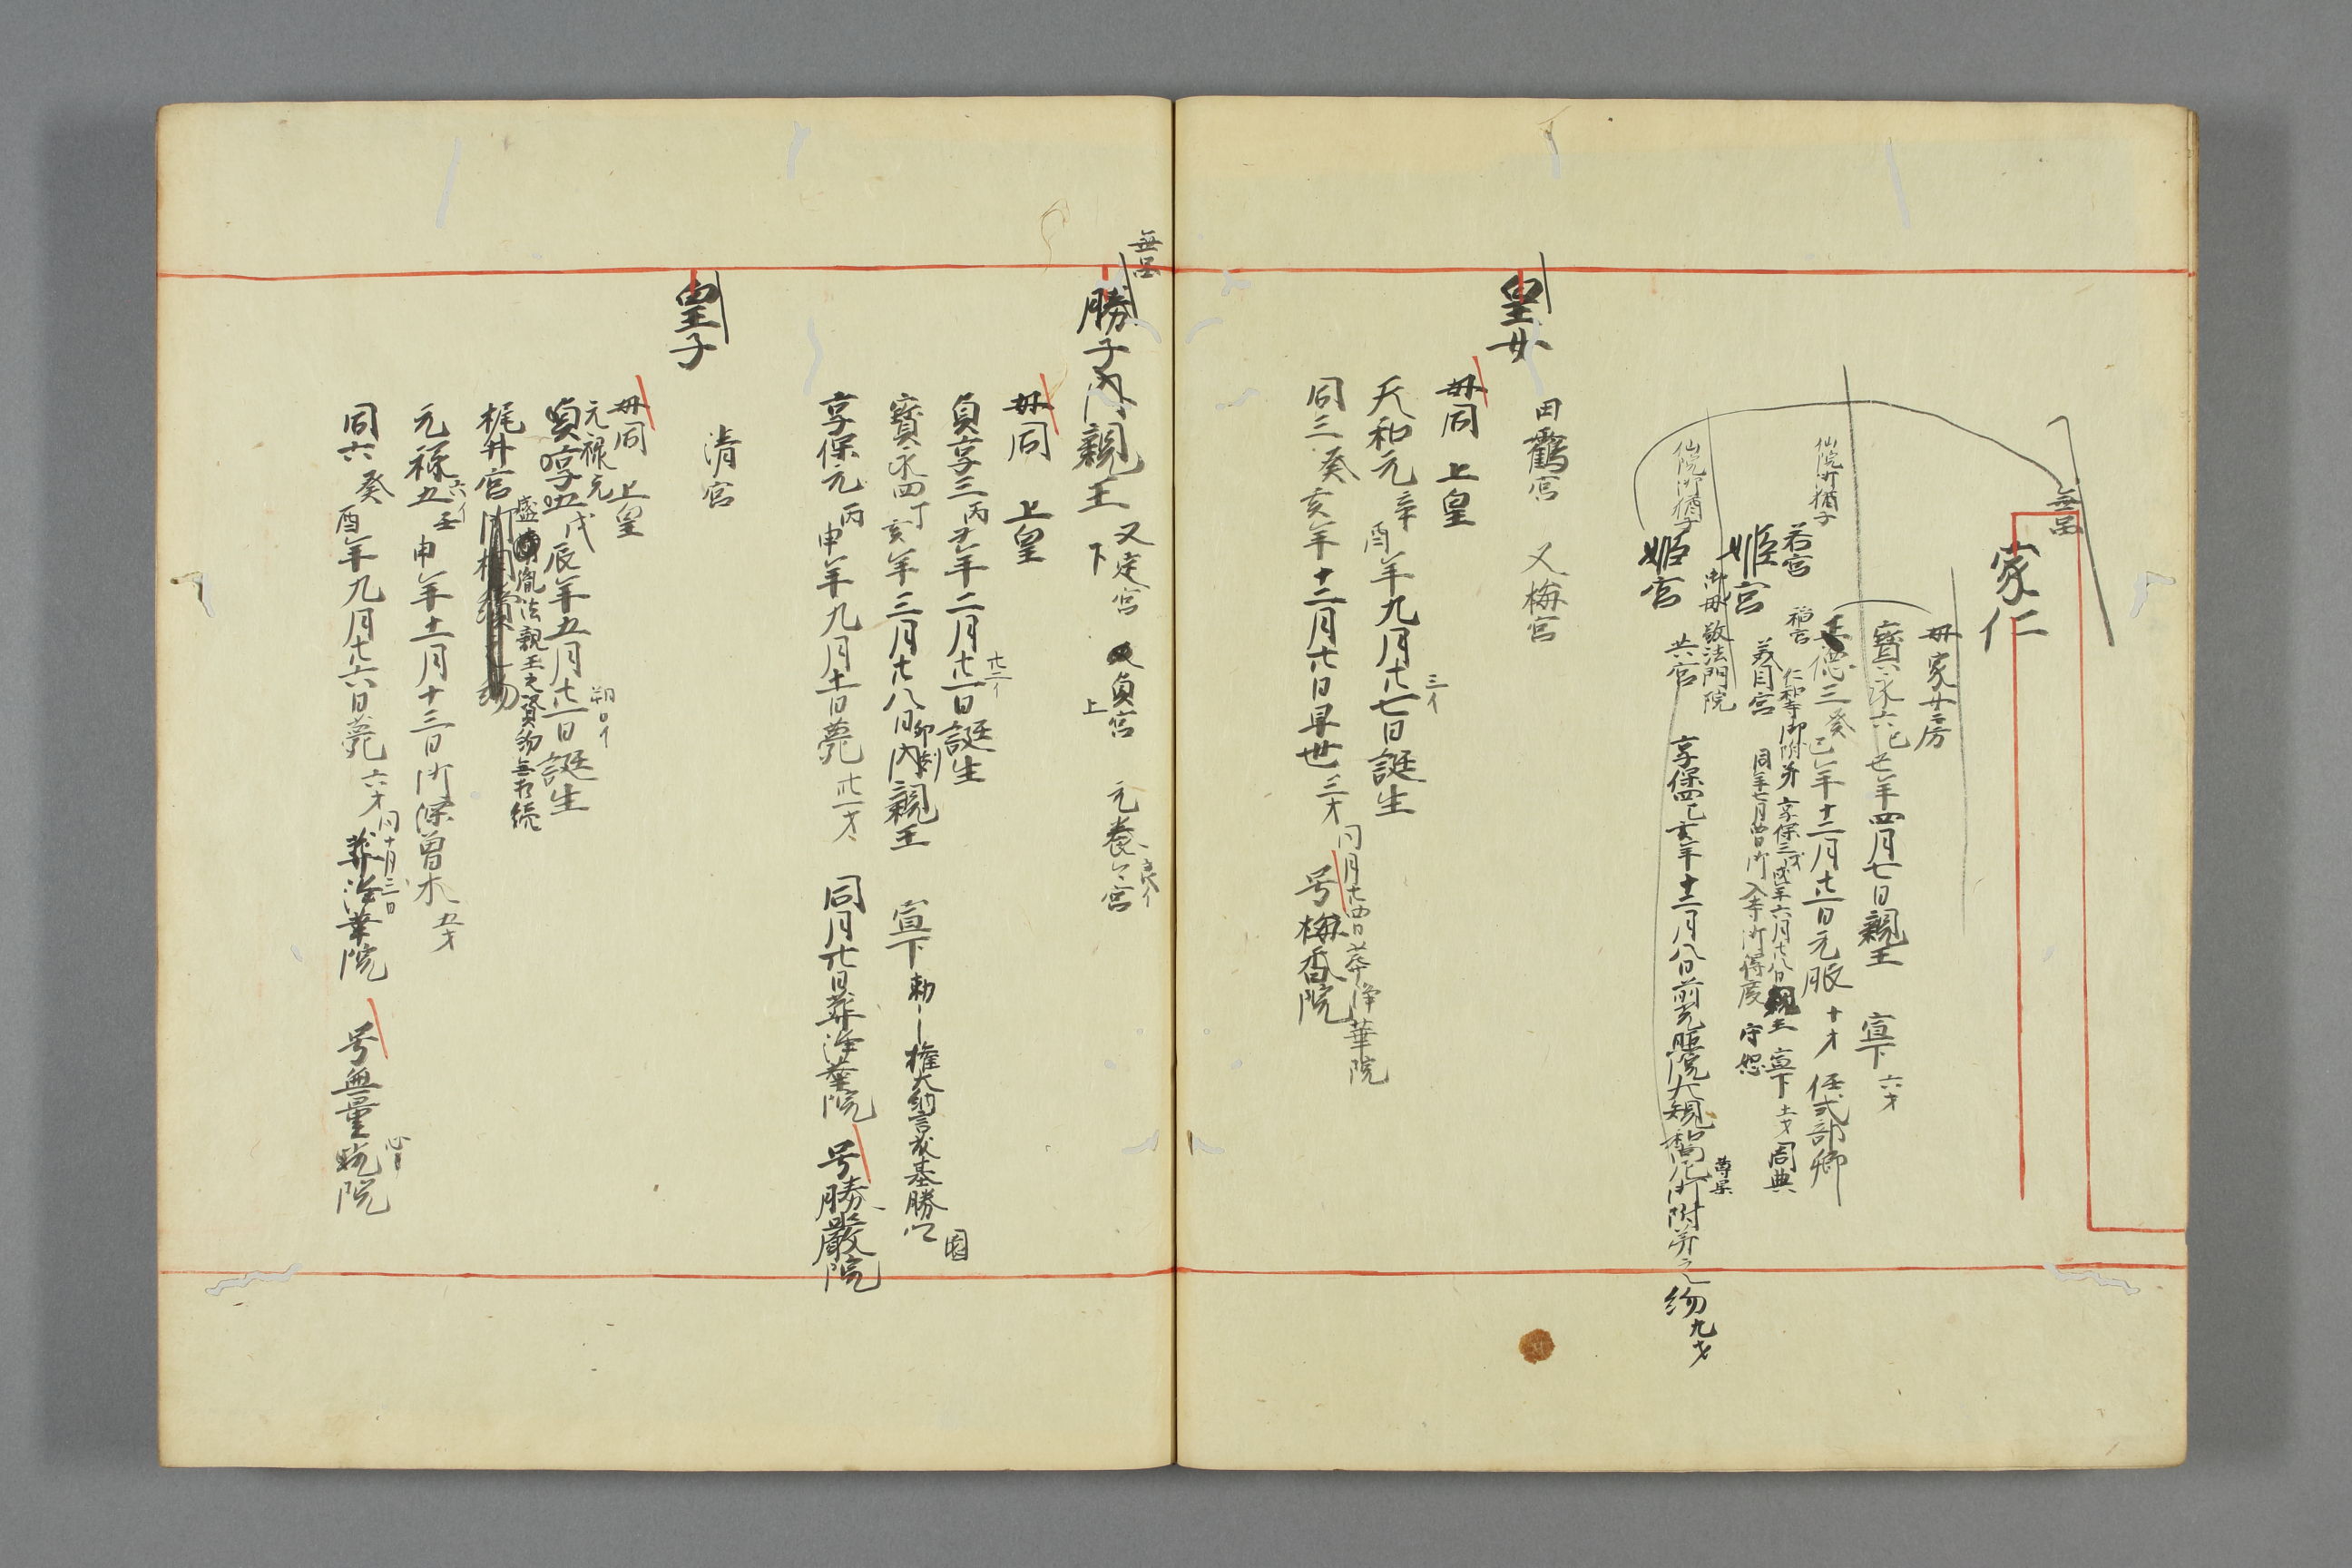 無品
家仁
母家女房
寶永六己丑年四月七日親王 宣下 六才
正德三癸巳年十二月廿一日元服 十才 任式部卿
仙院御猶子
若宮 福宮 仁和寺御附弟 享保三戊戌年六月廿八日親王 宣下 十一才 周典
姫宮 義周宮 同年七月 日御入寺御得度 守恕
御母敬法門院
仙院御猶子
姫宮 共宮 享保四己亥年十二月八日前光照院大規喬尼御附弟之約 九才
尊杲
皇女 田鶴宮 又梅宮
母同上皇
天和元辛酉年九月廿七日誕生
三イ
同三癸亥年十二月廿日早世 三才 号梅香院
同月廿四日葬浄華院
無品
勝子内親王 又定宮 下 又貞宮 上 元養々宮
良イ
母同 上皇
貞享三丙寅年二月廿一日誕生
廿二イ
寶永四丁亥年三月廿八日内親王 宣下 勅別 権大納言藤基勝公
即刻
園
享保元丙申年九月十一日薨 廿一才 同月廿日葬浄華院 号勝嚴院
皇子 清宮
母同 上皇
元禄元
貞享五戊辰年五月廿一日誕生
朔日イ
梶井宮御相續之約
盛胤法親王之資約無相続
元禄五壬申年十二月十三日御深曽木 五才
六イ
同六癸酉年九月廿六日薨 六才 葬浄華院 号無量院
同十月三日